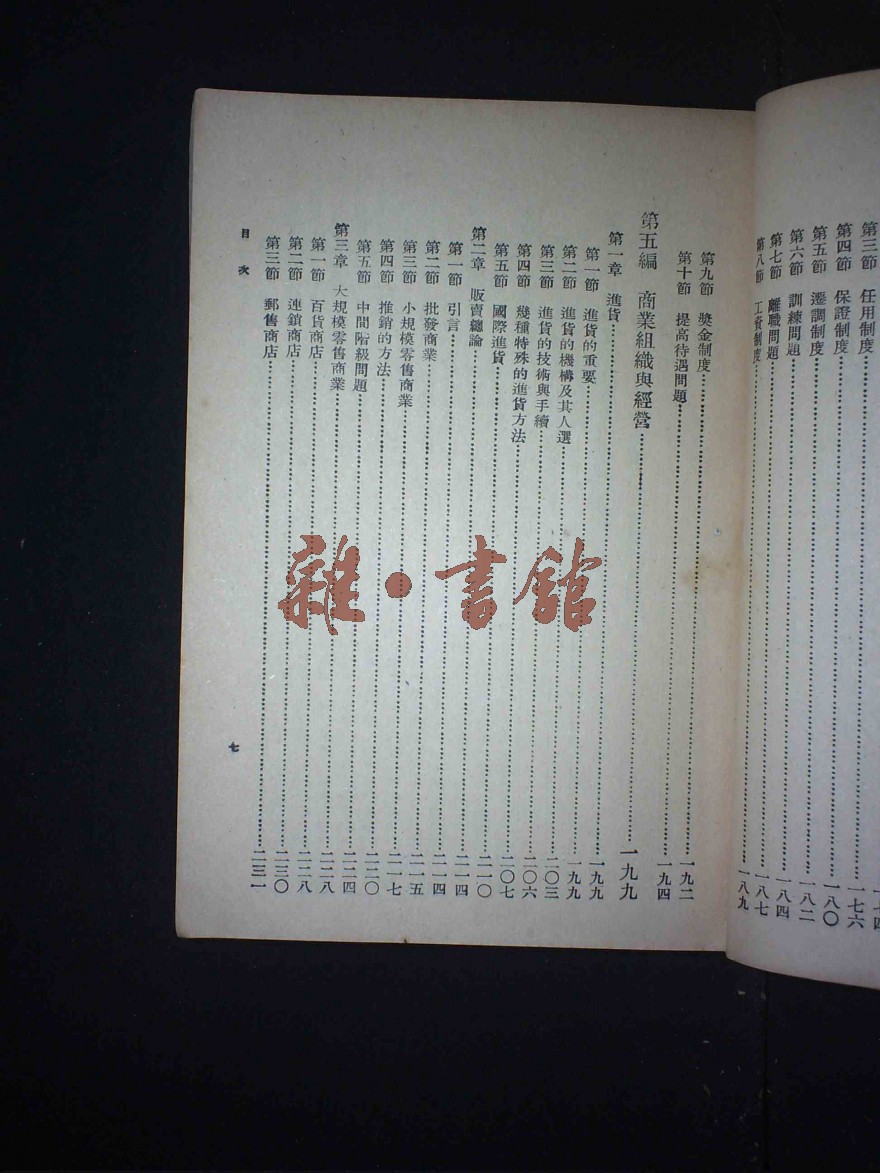 七四
第三節 任用制度……一七六
第四節 保證制度……一八〇
第五節 遷調制度……一八二
第六節 訓練問題……一八四
第七節 離職問題……一八七
第八節 工資制度……一八九
第九節 獎金制度……一九二
第十節 提高待遇問題……一九四
第五編 商業組織與經營……一九九
第一章 進貨……一九九
第一節 進貨的重要……一九九
第二節 進貨的機構及其人選……二〇三
第三節 進貨的技術與手續……二〇六
第四節 幾種特殊的進貨方法……二〇七
第五節 國際進貨……二一〇
第二章 販賣總論……二一四
第一節 引言……二一四
第二節 批發商業……二一五
第三節 小規模零售商業……二一七
第四節 推銷的方法……二二〇
第五節 中間階級問題……二二四
第三章 大規模零售商業……二二八
第一節 百貨商店……二二八
第二節 連鎖商店……二三〇
第三節 郵售商店……二三一
目次
七
雜·書館